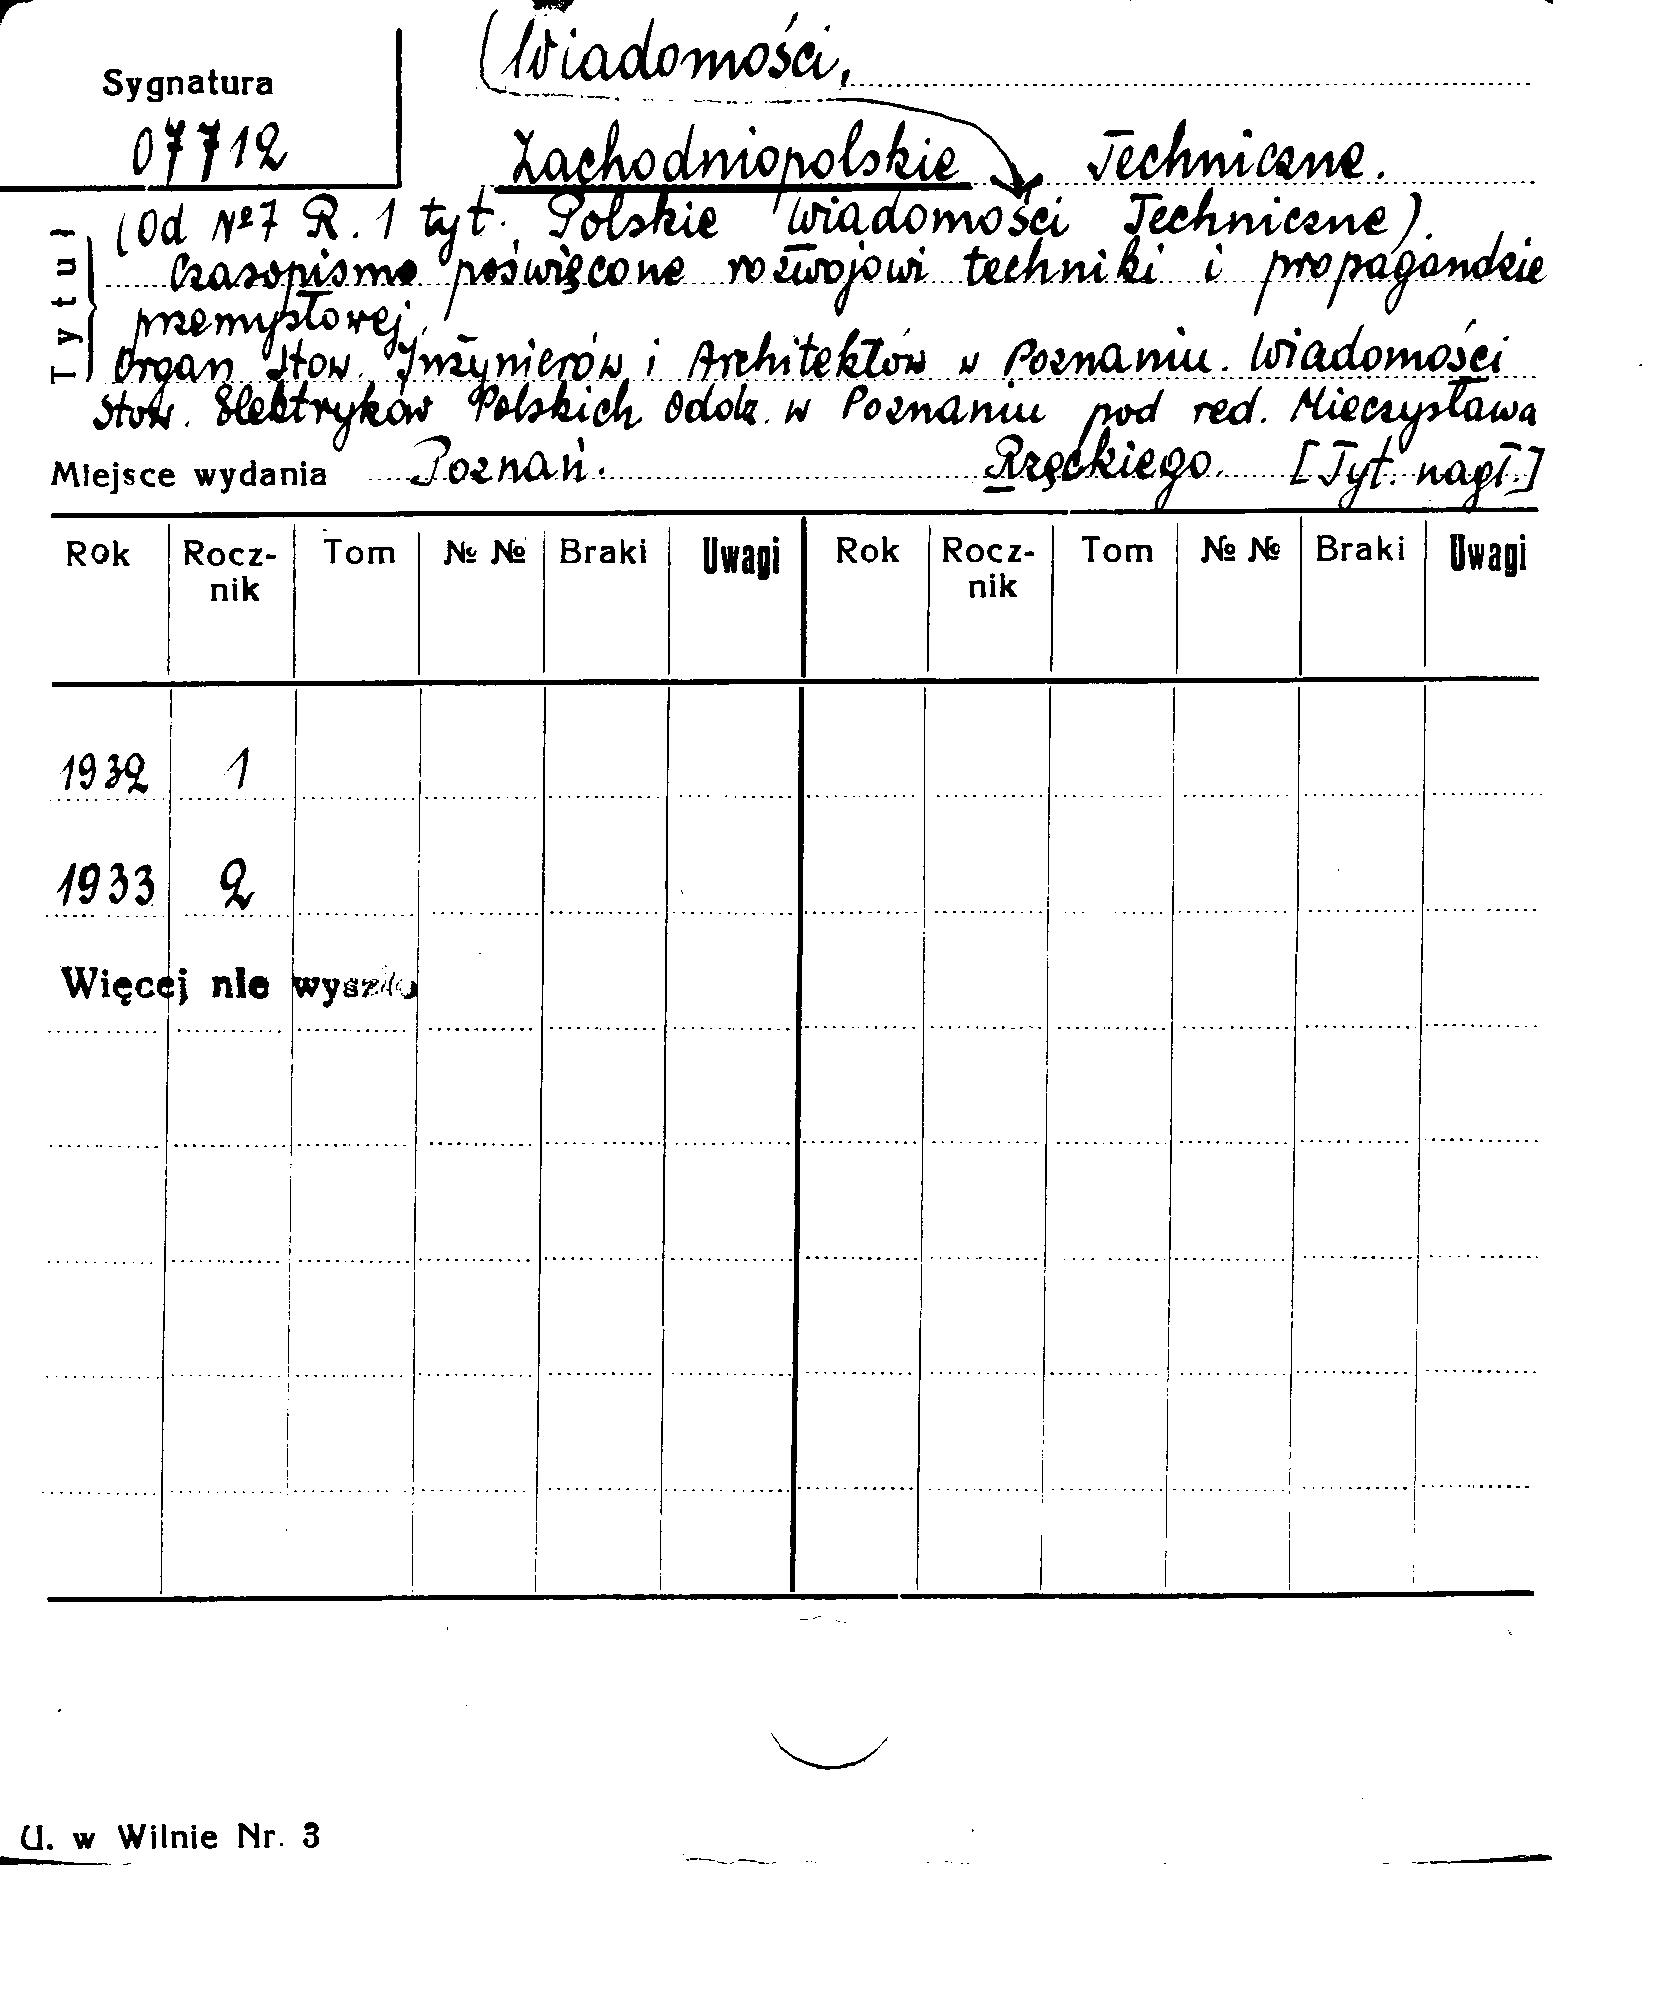 Sygnatura
07712
(Wiadomości,
Zachodniopolskie Techniczne.
Tytuł
(Od №7 R. 1 tyt. Polskie Wiadomości Techniczne).
Czasopismo poświęcone rozwojowi techniki i propagandzie
przemysłowej.
Organ Stow. Inżynierów i Architektów w Poznaniu. Wiadomości
Stow. Elektryków Polskich Oddz. w Poznaniu pod red. Mieczysława
Miejsce wydania Poznań. Rzęckiego. [Tyt. nagł.]
Rok Rocz- Tom № № Braki Uwagi Rok Rocz- Tom № № Braki Uwagi
nik nik
1932 1
1933 2
Więcej nie wyszło
U. w Wilnie Nr. 3